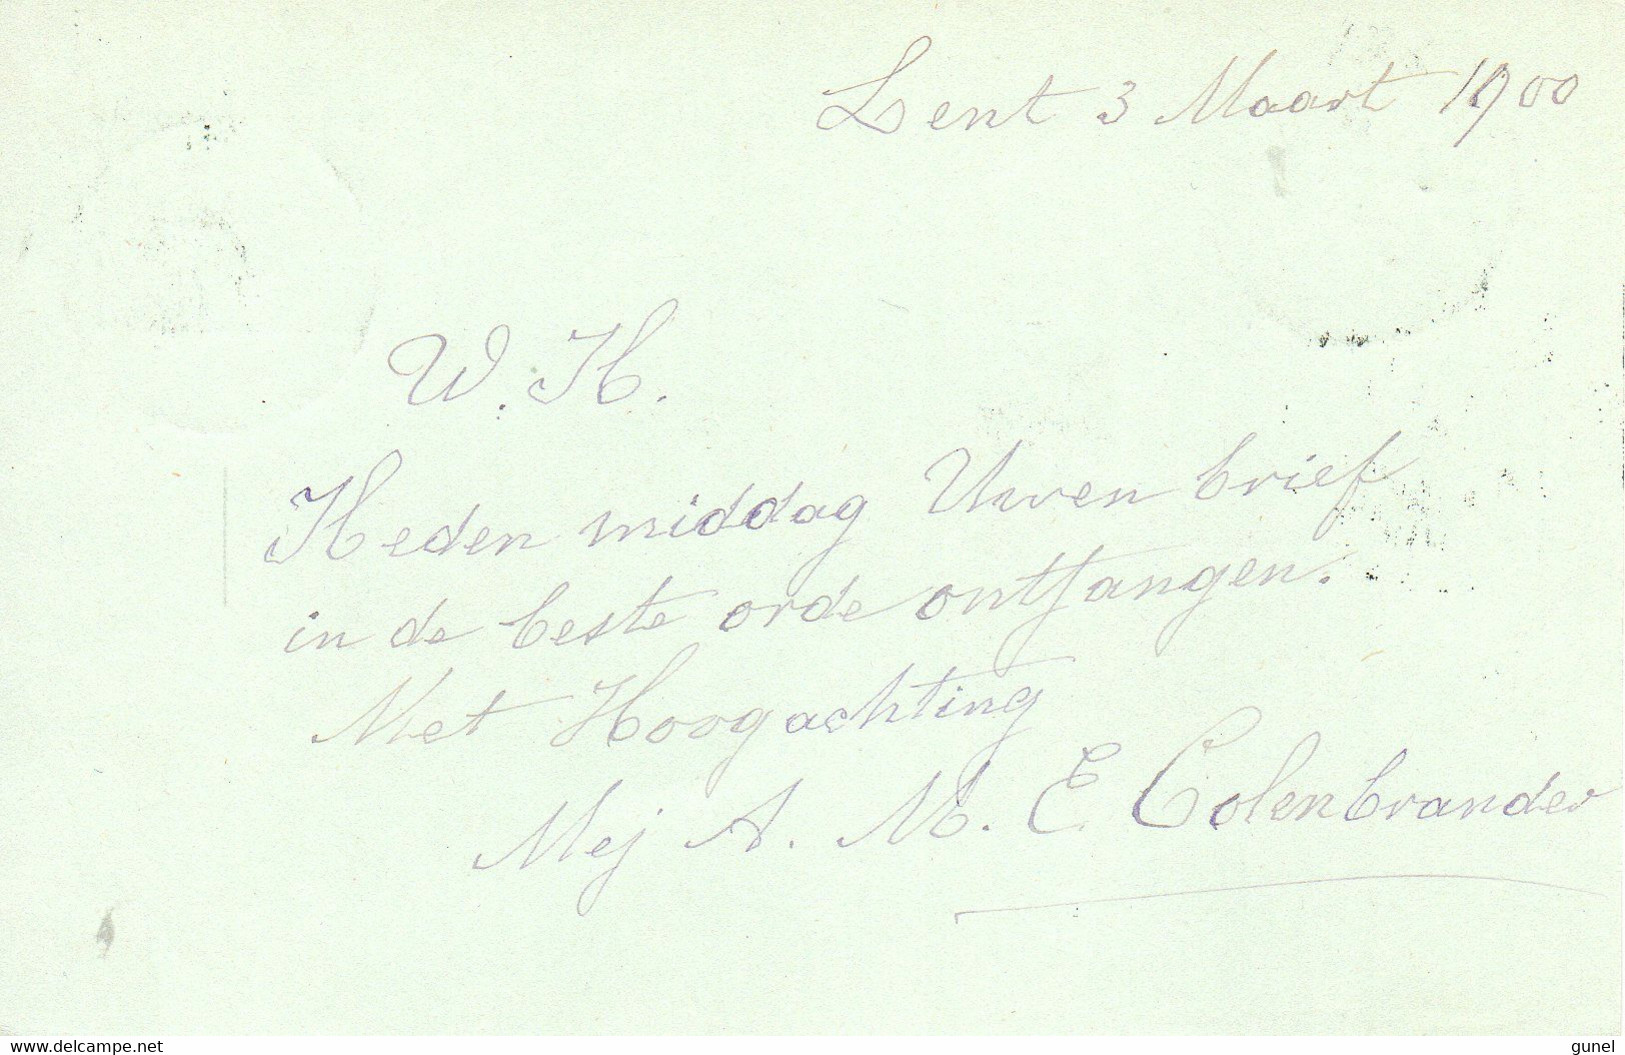 Lent 3 Maart 1900
W. H.
Heden middag Uwen brief
in de beste orde ontfangen.
Met Hoogachting
Mej A. M. E. Colenbrander
www.delcampe.net
gunel